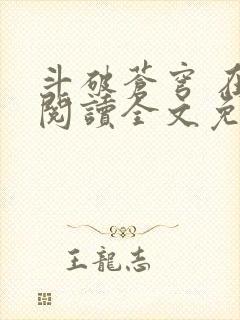 斗破蒼穹 在
閱讀全文免
王龍志